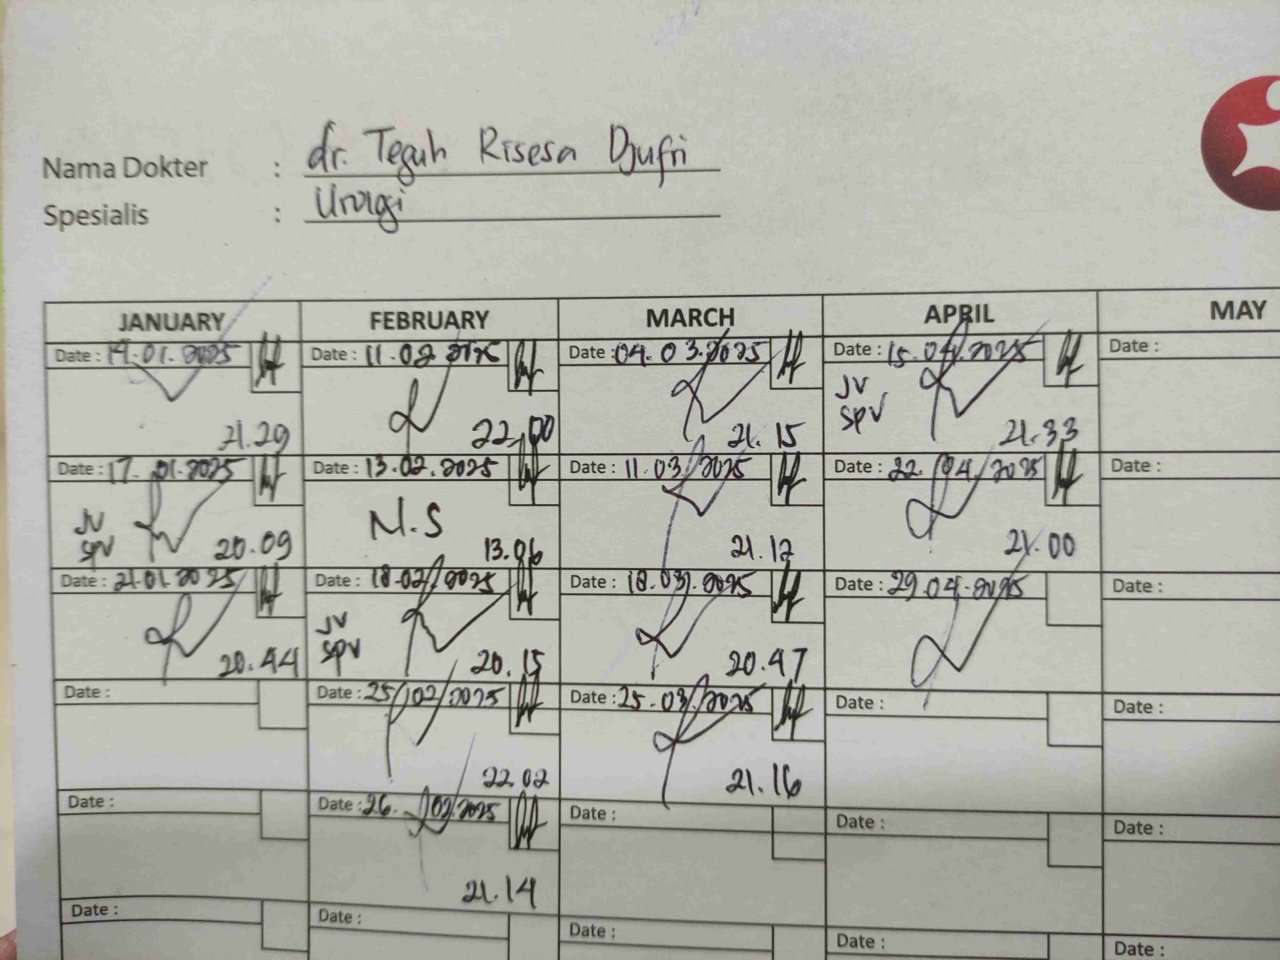 Nama Dokter : dr. Teguh Risesa Djufri
Spesialis : Urologi
JANUARY FEBRUARY MARCH APRIL MAY
Date : 14.01.2025 Date : 11.02.2025 Date : 04.03.2025 Date : 15.04.2025 Date :
JV
SPV
21.29 22.00 21.15 21.33
Date : 17.01.2025 Date : 13.02.2025 Date : 11.03.2025 Date : 22.04.2025 Date :
JV N.S
SPV 20.09 13.06 21.12 21.00
Date : 21.01.2025 Date : 18.02.2025 Date : 18.03.2025 Date : 29.04.2025 Date :
JV
SPV
20.44 20.15 20.47
Date : Date : 25/02/2025 Date : 25.03.2025 Date : Date :
22.02 21.16
Date : Date : 26.02.2025 Date : Date : Date :
21.14
Date : Date : Date : Date : Date :